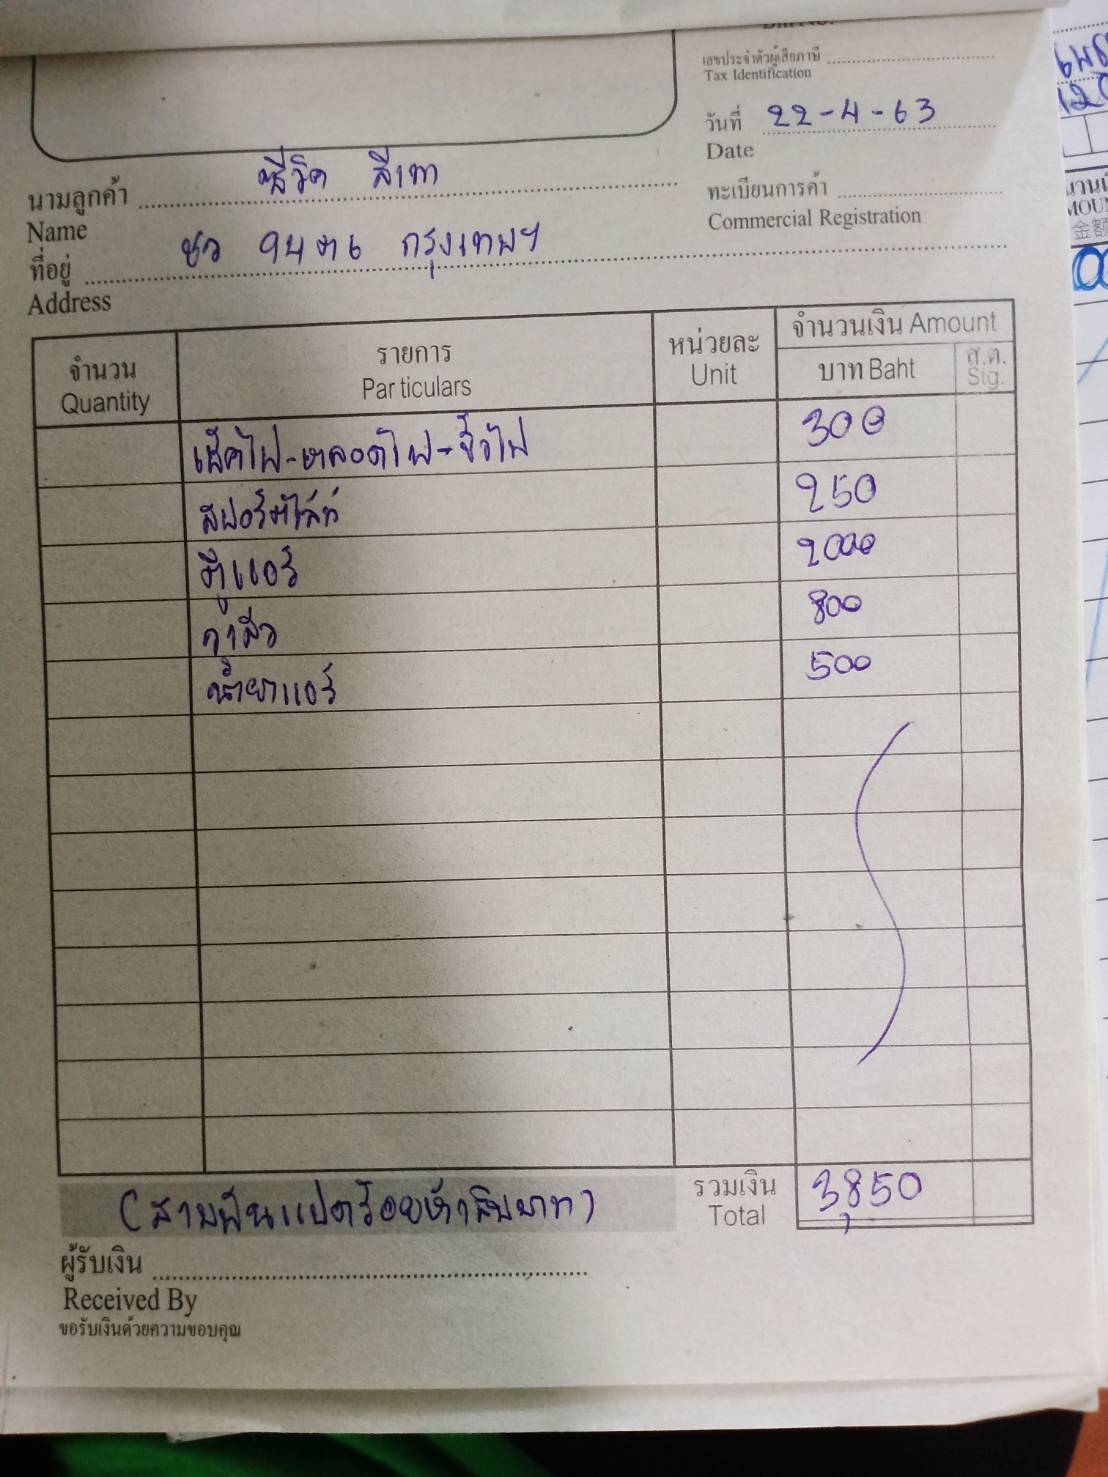 เลขประจำตัวผู้เสียภาษี
Tax Identification
วันที่ 22-4-63
Date
นามลูกค้า ซีวิค สีเทา
Name
ทะเบียนการค้า
Commercial Registration
ที่อยู่ ชว 94 กรุงเทพฯ
Address
จำนวน
Quantity
รายการ
Particulars
หน่วยละ
Unit
จำนวนเงิน Amount
บาท Baht
ส.ต.
Stg.
เช็คไฟ-หลอดไฟ-ขั้วไฟ 300
สปอร์ตไลท์ 250
ตู้แอร์ 2000
วาล์ว 800
น้ำยาแอร์ 500
(สามพันแปดร้อยห้าสิบบาท)
รวมเงิน 3,850
Total
ผู้รับเงิน
Received By
ขอรับเงินด้วยความขอบคุณ